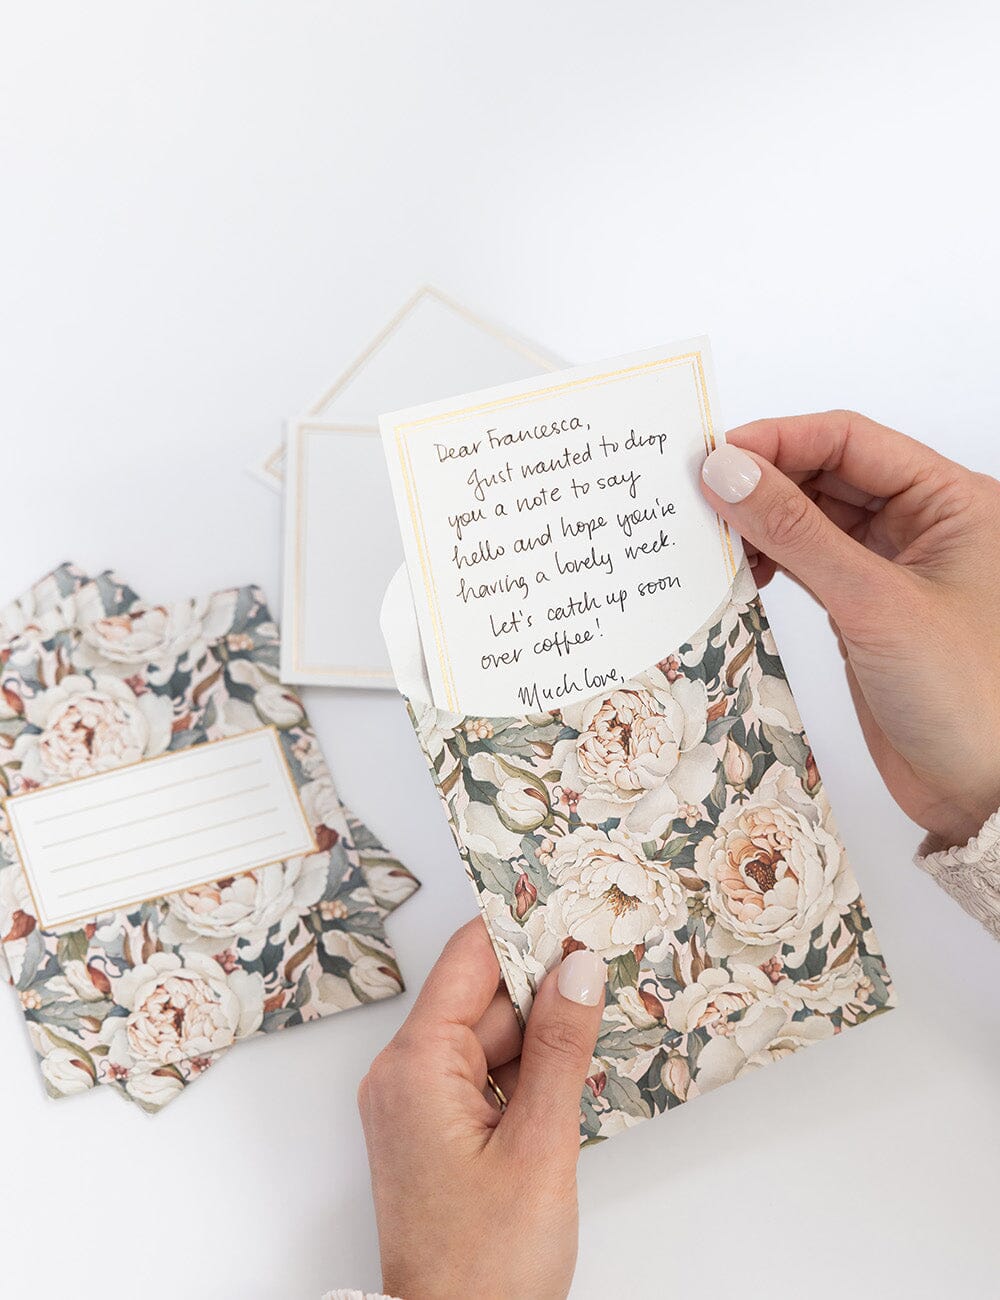 Dear Francesca,
Just wanted to drop
you a note to say
hello and hope you're
having a lovely week.
Let's catch up soon
over coffee!
Much love,